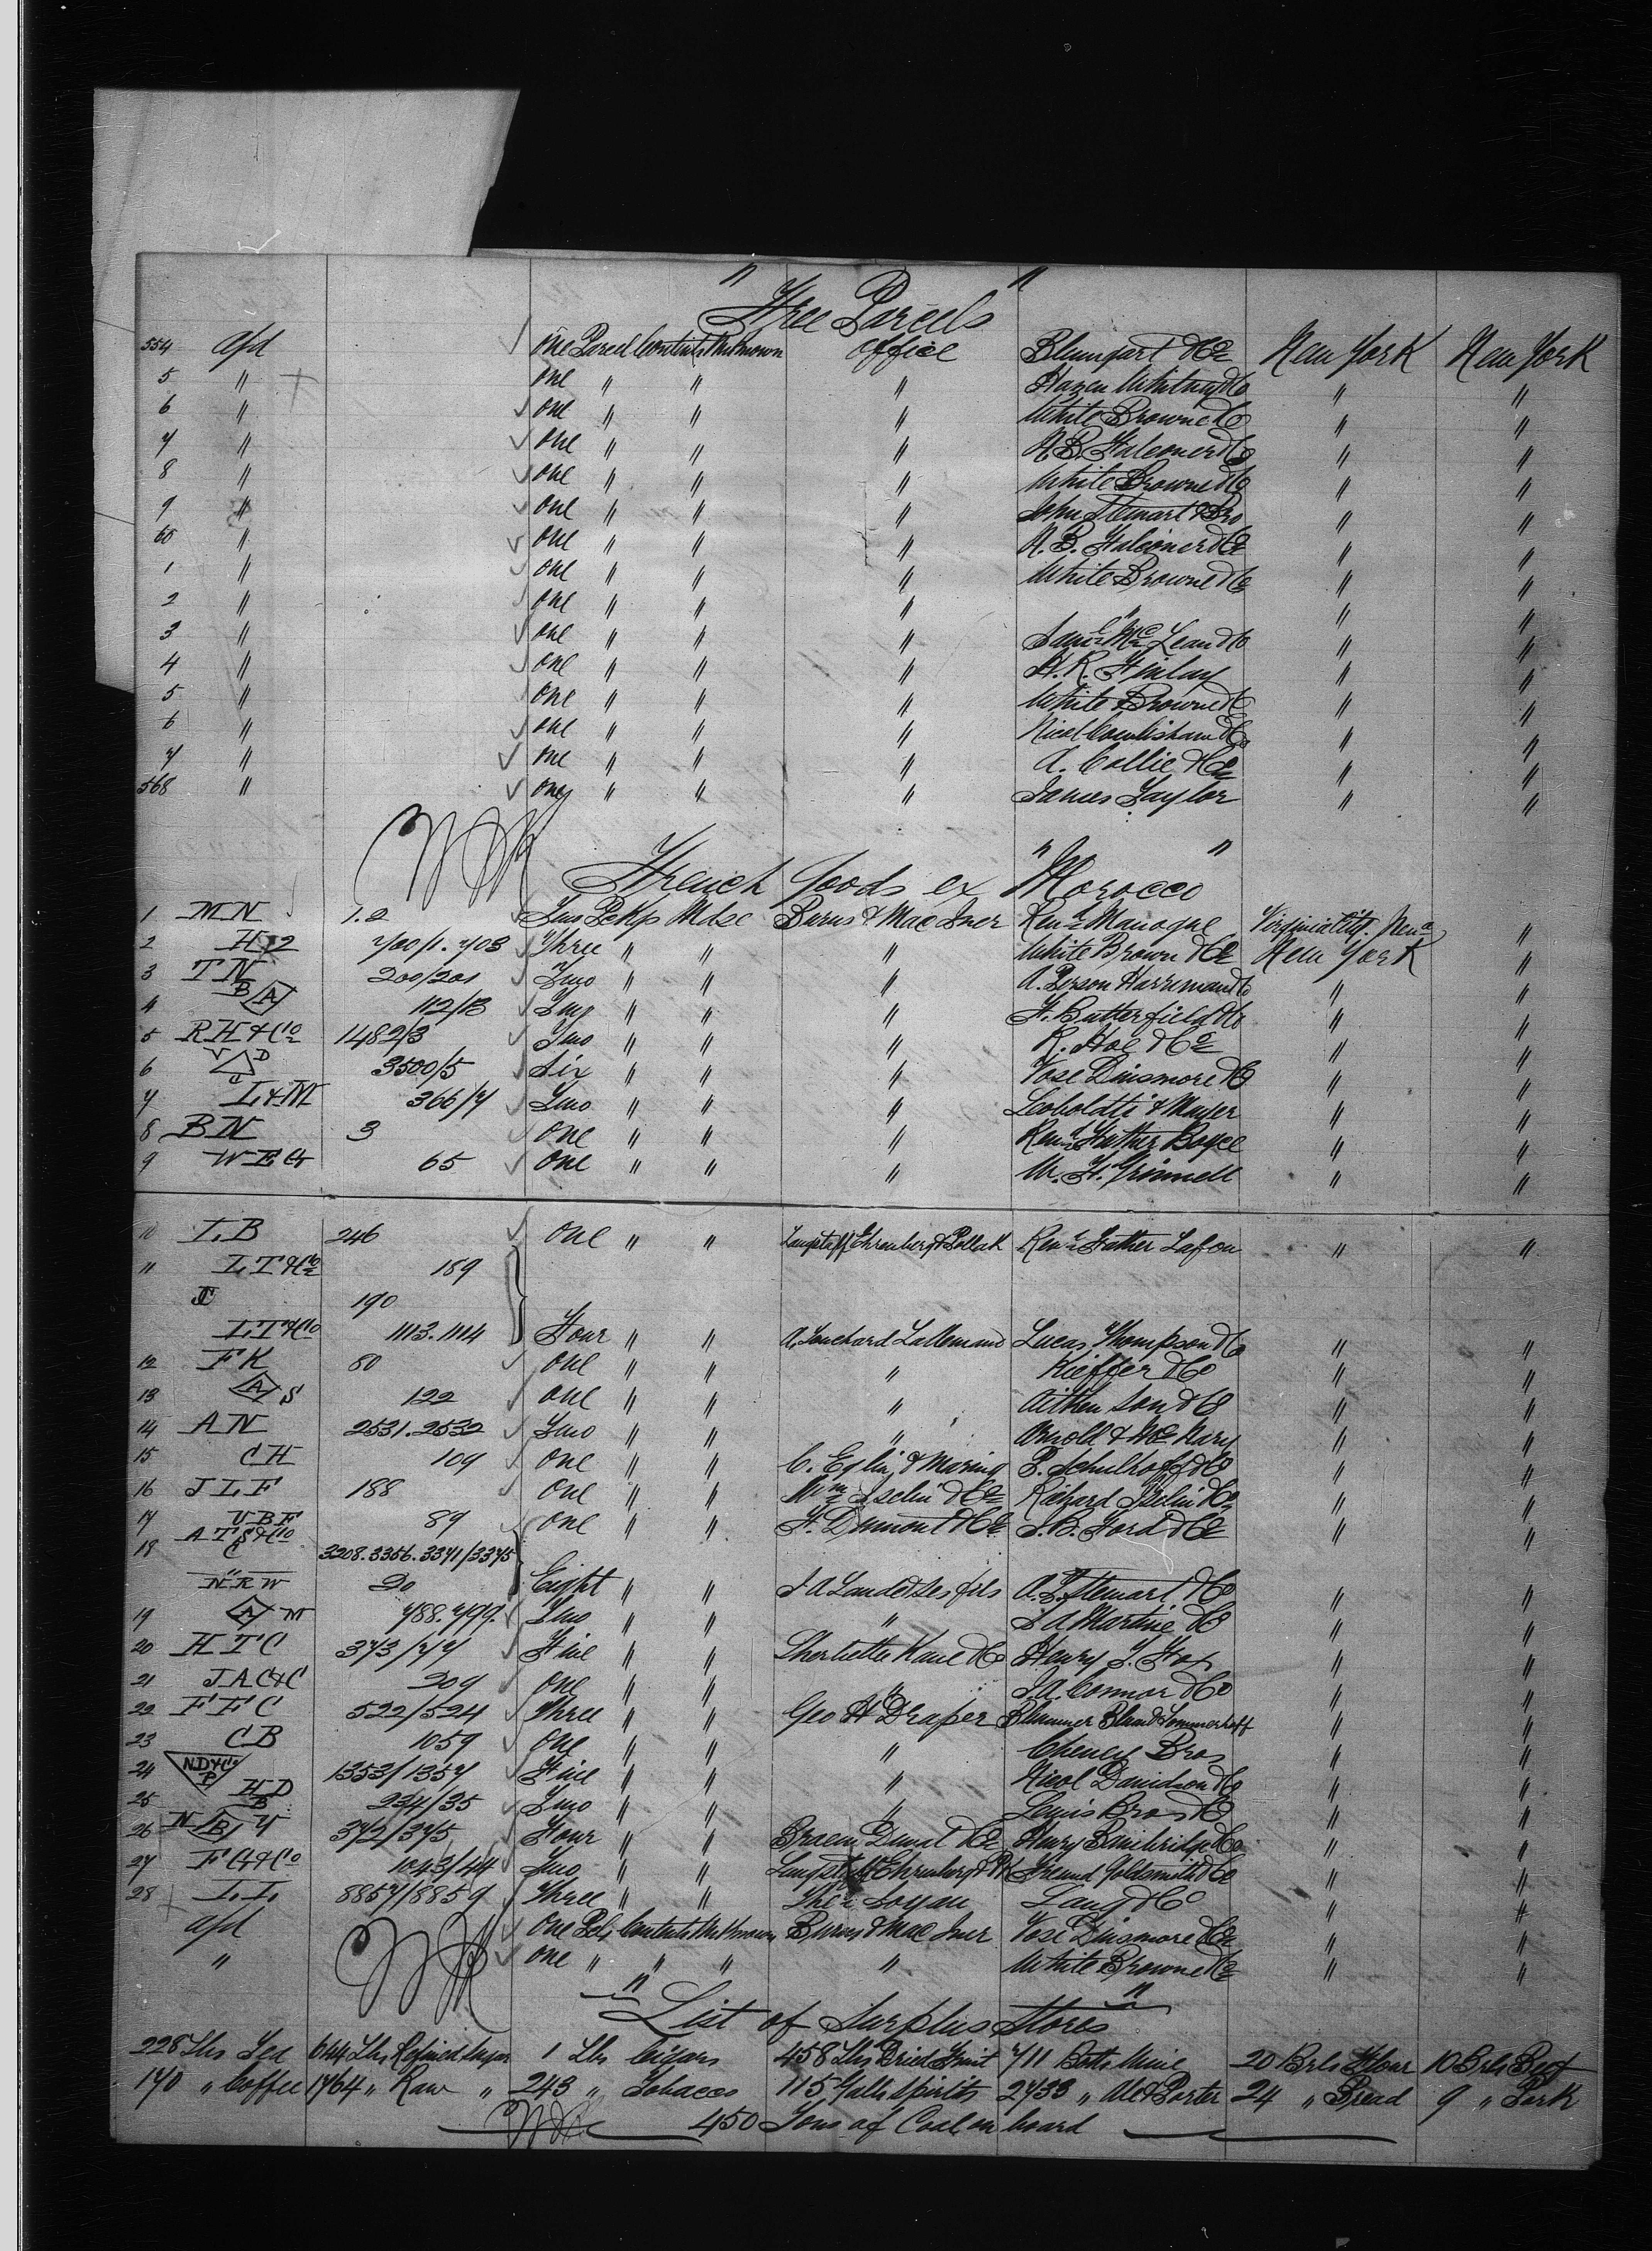 " Free Parcels "
554 a/d One Parcel Contents Unknown Office Blumgart & Co New York New York
5 " One " " " Hazen Whitney & Co " "
6 " One " " " White Browne & Co " "
7 " One " " " A. B. Falconer & Co " "
8 " One " " " White Browne & Co " "
9 " One " " " John Stewart & Bro " "
60 " One " " " A. B. Falconer & Co " "
1 " One " " " White Browne & Co " "
2 " One " " " " " "
3 " One " " " Saml McLean & Co " "
4 " One " " " H. R. Finlay " "
5 " One " " " White Browne & Co " "
6 " One " " " Nicol Cowlishaw & Co " "
7 " One " " " A. Collie & Co " "
568 " One " " " James Taylor " "
French Goods ex "Morocco"
1 MN 1.2 Two Pckgs Mdse Burns & Mac Iver Revd Manogue Virginia City. Neva "
2 H 2 700/1.703 Three " " " White Brown & Co New York "
3 TN B 200/201 Two " " " A. Person Harriman & Co " "
4 A 112/13 Two " " " F. Butterfield & Co " "
5 RH & Co 1482/3 Two " " " R. Hoe & Co " "
6 V D C 3500/5 Six " " " Vose Dinsmore & Co " "
7 L & M 366/7 Two " " " Leoboldti & Meyer " "
8 BN 3 One " " " Revd Father Boyce " "
9 WEG 65 One " " " W. F. Grinnell " "
10 LB 246 One " " Langstaff Ehrenberg & Pollak Revd Father Lafon " "
11 LT & Co 189
JC 190
LT & Co 1113.1114 Four " " A. Souchard Lallemand Lucas Thompson & Co " "
12 FK 80 One " " " Kieffer & Co " "
13 A S 122 One " " " Aitken Son & Co " "
14 AN 2531.2532 Two " " " Arnold & McNary " "
15 CH 109 One " " C. Eglin & Maring P. Schulhoff & Co " "
16 JLF 188 One " " Wm Iselin & Co Richard Iselin & Co " "
17 VBF 89 One " " F. Dumont & Co J. B. Ford & Co " "
18 ATS & Co C 3208.3356.3341/3345
" NRW 20 Eight " " J A Lande & ses fils A. T. Stewart & Co " "
19 A M 788.799. Two " " " J A Martine & Co " "
20 HTC 373/77 Five " " Shortiette Kane & Co Henry T. Fox " "
21 JAC & C 209 One " " " J. A. Connor & Co " "
22 FFC 522/524 Three " " Geo H Draper Blummer Blum & Sommerhoff " "
23 CB 1059 One " " " Cheney Bros " "
24 ND & Co P 1353/1357 Five " " " Nicol Davidson & Co " "
25 HD B 234/35 Two " " " Lewis Bros & Co " "
26 N B V 372/375 Four " " Braem Duval & Co Henry Bainbridge & Co " "
27 FG & Co 1043/44 Two " " Langstaff Ehrenberg & Pk Freund Goldsmith & Co " "
28 LL 8857/8859 Three " " Logan Lang & Co " "
a/d One Pcl. Contents Unknown Burns & Mac Iver Vose Dinsmore & Co " "
" One " " " White Browne & Co " "
" List of Surplus Stores "
228 Lbs Tea 644 Lbs Refined Sugar 1 Lb Cigars 458 Lbs Dried Fruit 711 Botts Wine 20 Brls Flour 10 Brls Beef
170 " Coffee 1764 " Raw " 243 " Tobacco 115 Galls Spirits 2733 " Ale & Porter 24 " Bread 9 " Pork
450 Tons of Coal on board